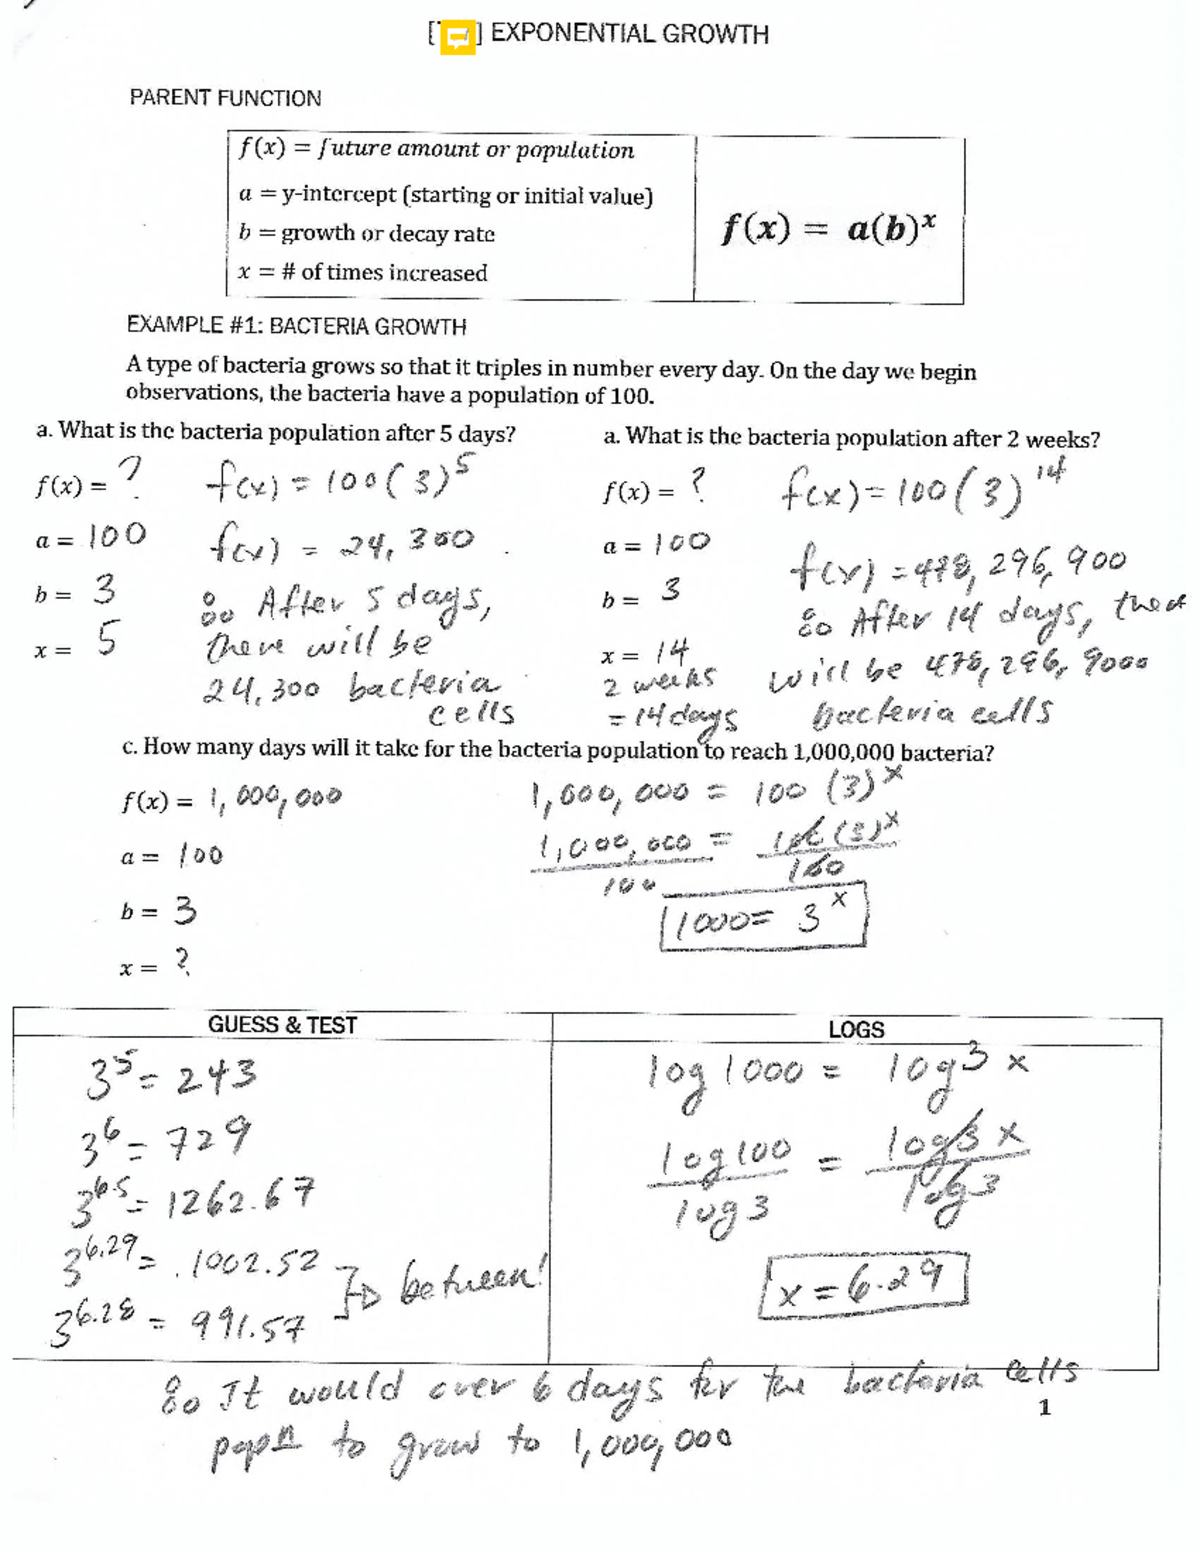 EXPONENTIAL GROWTH
PARENT FUNCTION
f(x) = future amount or population
a = y-intercept (starting or initial value)
b = growth or decay rate
x = # of times increased
f(x) = a(b)^x
EXAMPLE #1: BACTERIA GROWTH
A type of bacteria grows so that it triples in number every day. On the day we begin
observations, the bacteria have a population of 100.
a. What is the bacteria population after 5 days?
f(x) = ?
a = 100
b = 3
x = 5
f(x) = 100(3)^5
f(x) = 24,300
∴ After 5 days,
there will be
24,300 bacteria
cells
a. What is the bacteria population after 2 weeks?
f(x) = ?
a = 100
b = 3
x = 14
2 weeks
= 14 days
f(x) = 100(3)^14
f(x) = 478, 296, 900
∴ After 14 days, there
will be 478, 296, 9000
bacteria cells
c. How many days will it take for the bacteria population to reach 1,000,000 bacteria?
f(x) = 1,000,000
a = 100
b = 3
x = ?
1,000,000 = 100 (3)^x
1,000,000 = 100 (3)^x
100 100
1000 = 3^x
GUESS & TEST
3^5 = 243
3^6 = 729
3^6.5 = 1262.67
3^6.29 = 1002.52
3^6.28 = 991.57
between!
LOGS
log 1000 = log 3 x
log 100 = log 3 x
log 3 log 3
x = 6.29
∴ It would over 6 days for the bacteria cells
popn to grow to 1,000,000
1